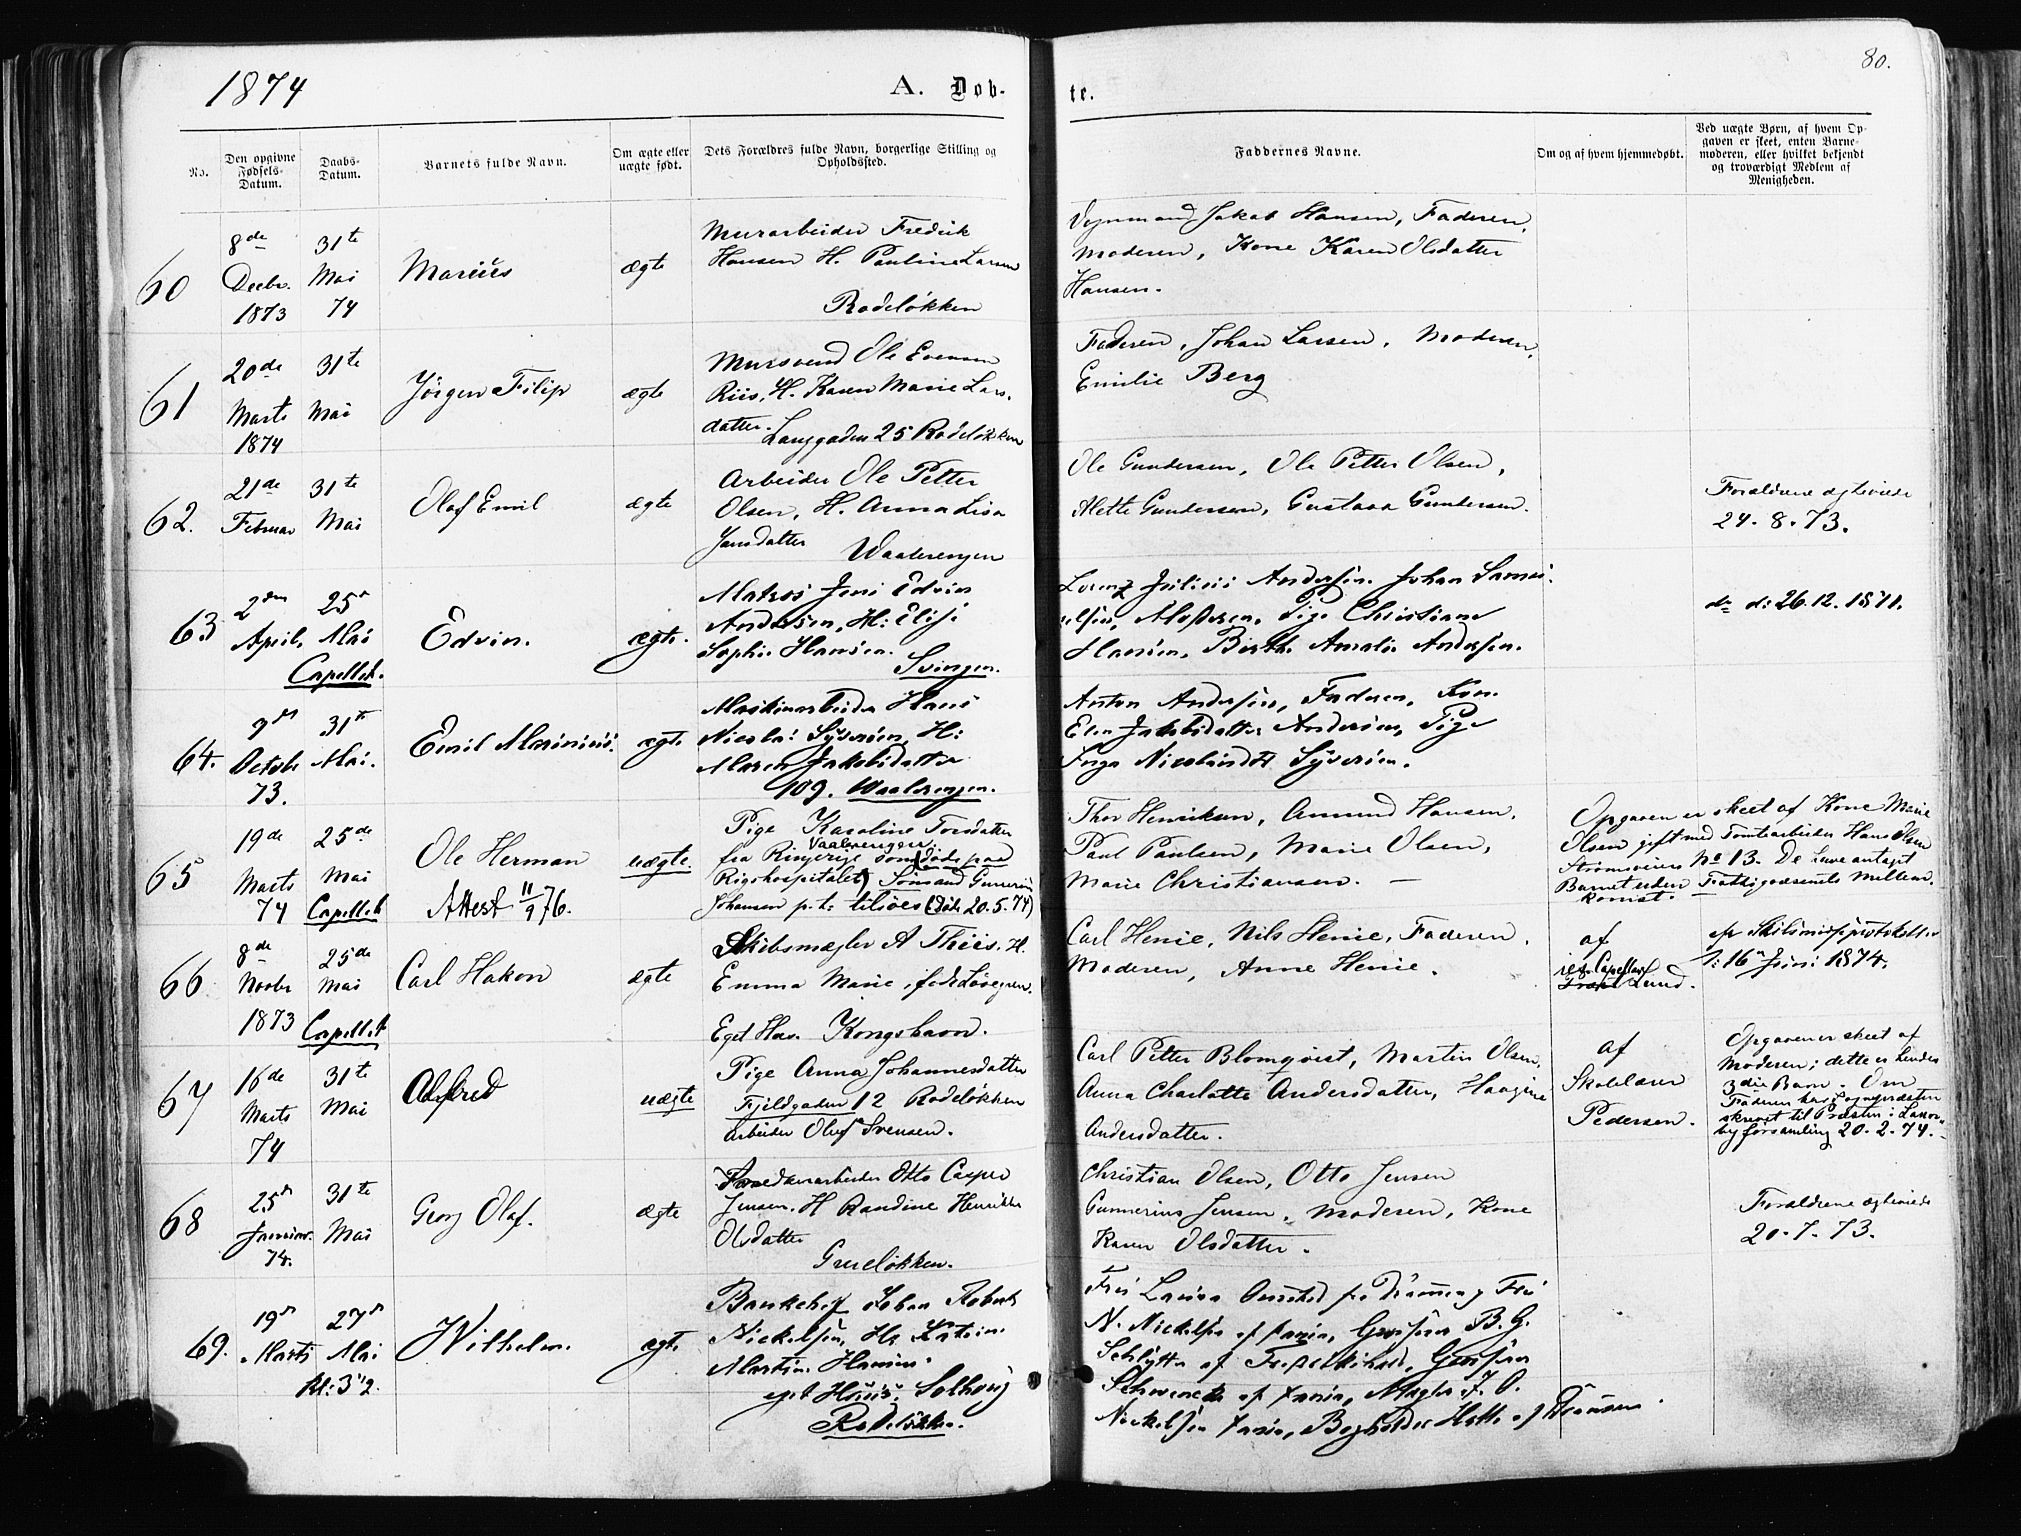 1874
A. Døb-
te.
80.
No.
Den opgivne Fødsels-Datum.
Daabs-Datum.
Barnets fulde Navn.
Om ægte eller uægte født.
Dets Forældres fulde Navn, borgerlige Stilling og Opholdssted.
Faddernes Navne.
Om og af hvem hjemmedøbt.
Ved uægte Børn, af hvem Op-
gaven er skeet, enten Barne-
moderen, eller hvilket bekjendt
og troværdigt Medlem af
Menigheden.
60
8de Decbr. 1873
31te Mai 74
Marius
ægte
Murarbeider Fredrik
Hansen H. Pauline Larsen
Rodeløkken
Vognmand Jakob Hansen, Faderen,
Moderen, Kone Karen Olsdatter
Hansen.
61
20de Marts 1874
31te Mai
Jørgen Filip
ægte
Mursvend Ole Evensen
Riis, H. Karen Marie Lars-
datter. Langgaden 25 Rodeløkken
Faderen, Johan Larsen, Moderen,
Emilie Berg
62.
21de Februar
31te Mai
Olaf Emil
ægte
Arbeider Ole Petter
Olsen, H. Anna Lisa
Jansdatter Waalerengen
Ole Gundersen, Ole Petter Olsen,
Alette Gundersen, Gustava Gundersen.
Forældrene ægteviede
24-8-73.
63
2den April,
25de Mai
Capellet.
Edvin.
ægte.
Matros Jens Edvin
Andersen, H: Elise
Sophie Hansen.
Svingen.
Lorenz Julius Andersen, Johan Samu-
elsen, Moderen, Pige Christiane
Hansen, Birthe Amalie Andersen.
do d: 26.12.1871.
64.
9de October 73.
31te Mai.
Emil Marinius.
ægte
Maskinarbeider Hans
Nicolai Syversen, H:
Maren Jakobsdatter
109. Waalerengen.
Anton Andersen, Faderen, Kone
Elen Jakobsdatter Andersen, Pige
Inga Nicoline Syversen.
65
19de Marts 74
25de Mai
Capellet
Ole Herman
Attest 11/9 76.
uægte
Pige Karoline Torsdatter
Vaalerengen
fra Ringerige som døde paa
Rigshospitalet, Sømand Gunerius
Johansen p.t. tilsøes (Død 20.5.74)
Thor Henriksen, Amund Hansen,
Paul Paulsen, Marie Olsen,
Marie Christiansen. —
Opgaven er skeet af Kone Marie
Olsen gift med Tomtearbeider Hans Olsen
Strømsveien No 13. De have antaget
Barnet uden Fattigvæsenets Mellem-
komst.
66
8de Novbr 1873
25de Mai
Capellet
Carl Hakon
ægte
Skibsmægler A Thiis. H.
Emma Marie, født Løvegren.
Eget Hus. Kongshavn.
Carl Henie, Nils Henie, Faderen,
Moderen, Anne Henie.
af
res. Capellan
Lund.
1: 16 Juni 1874.
67
16de Marts 74
31te Mai
Alfred
uægte
Pige Anna Johannesdatter
Fjeldgaden 12 Rodeløkken
Arbeider Oluf Svensen.
Carl Petter Blomqvist, Martin Olsen,
Anna Charlotte Andersdatter, Haagine
Andersdatter.
af
Skolelærer
Pedersen.
Opgaven er skeet af
Moderen; dette er hendes
3die Barn. Om
Faderen har Sognepræsten
skrevet til Præsten i
20-2-74.
68
25de Januar 74.
31te Mai
Georg Olaf.
ægte
Otto Casper
Jensen. H Randine Henrikke
Olsdatter
Grueløkken.
Christian Olsen, Otto Jensen
Gunnerius Jensen, Moderen, Kone
Karen Olsdatter.
Forældrene ægteviede
20-7-73.
69.
19de Marts
27de Mai
Kl: 3½.
Wilhelm.
ægte
Bankchef Johan Robert
Nickelsen, H: Katrine
Martine Hansen.
eget Huus. Solhoug
Rodeløkken.
Fru Laura Omsted fra Drammen, Fru
N. Nickelsen af Xania, Grosserer B. G.
Schlytter af Frederikshald, Grosserer
Schwencke af Xania, Mægler J. O.
Nickelsen Xania, Bogholder Holte af Drammen.